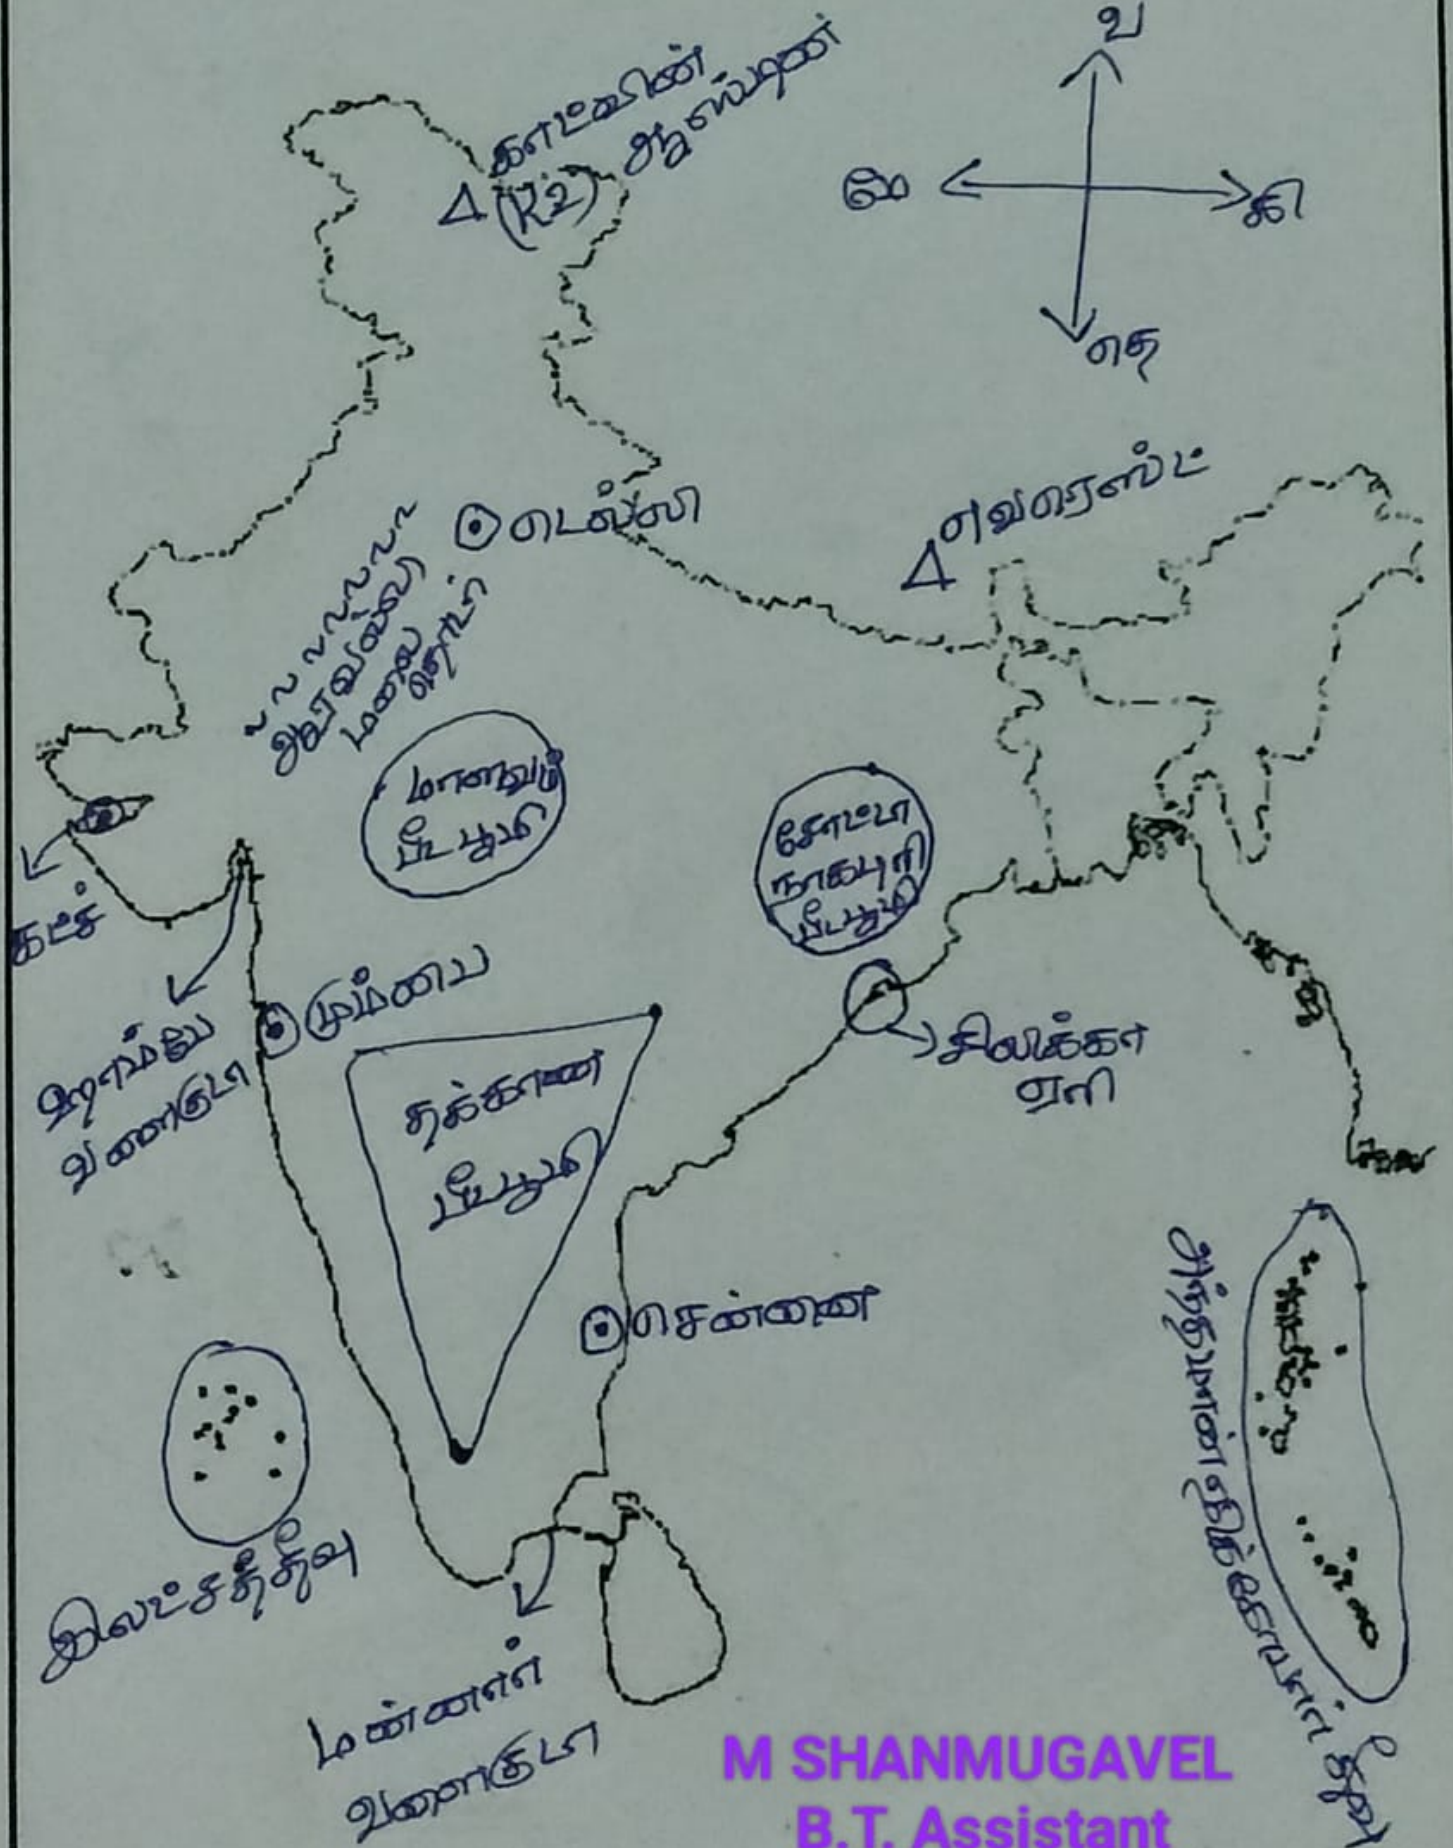 வ
காட்வின்
ஆஸ்டின்
(K2)
மே
கி
தெ
எவரெஸ்ட்
டெல்லி
ஆரவல்லி
மலை
தொடர்
மாளவ
பீடபூமி
சோட்டா
நாகபுரி
பீடபூமி
கட்ச்
மும்பை
காம்பே
வளைகுடா
தக்காண
பீடபூமி
சிலிக்கா
ஏரி
சென்னை
அந்தமான் நிக்கோபார் தீவு
இலட்சத்தீவு
மன்னார்
வளைகுடா
M SHANMUGAVEL
B.T. Assistant